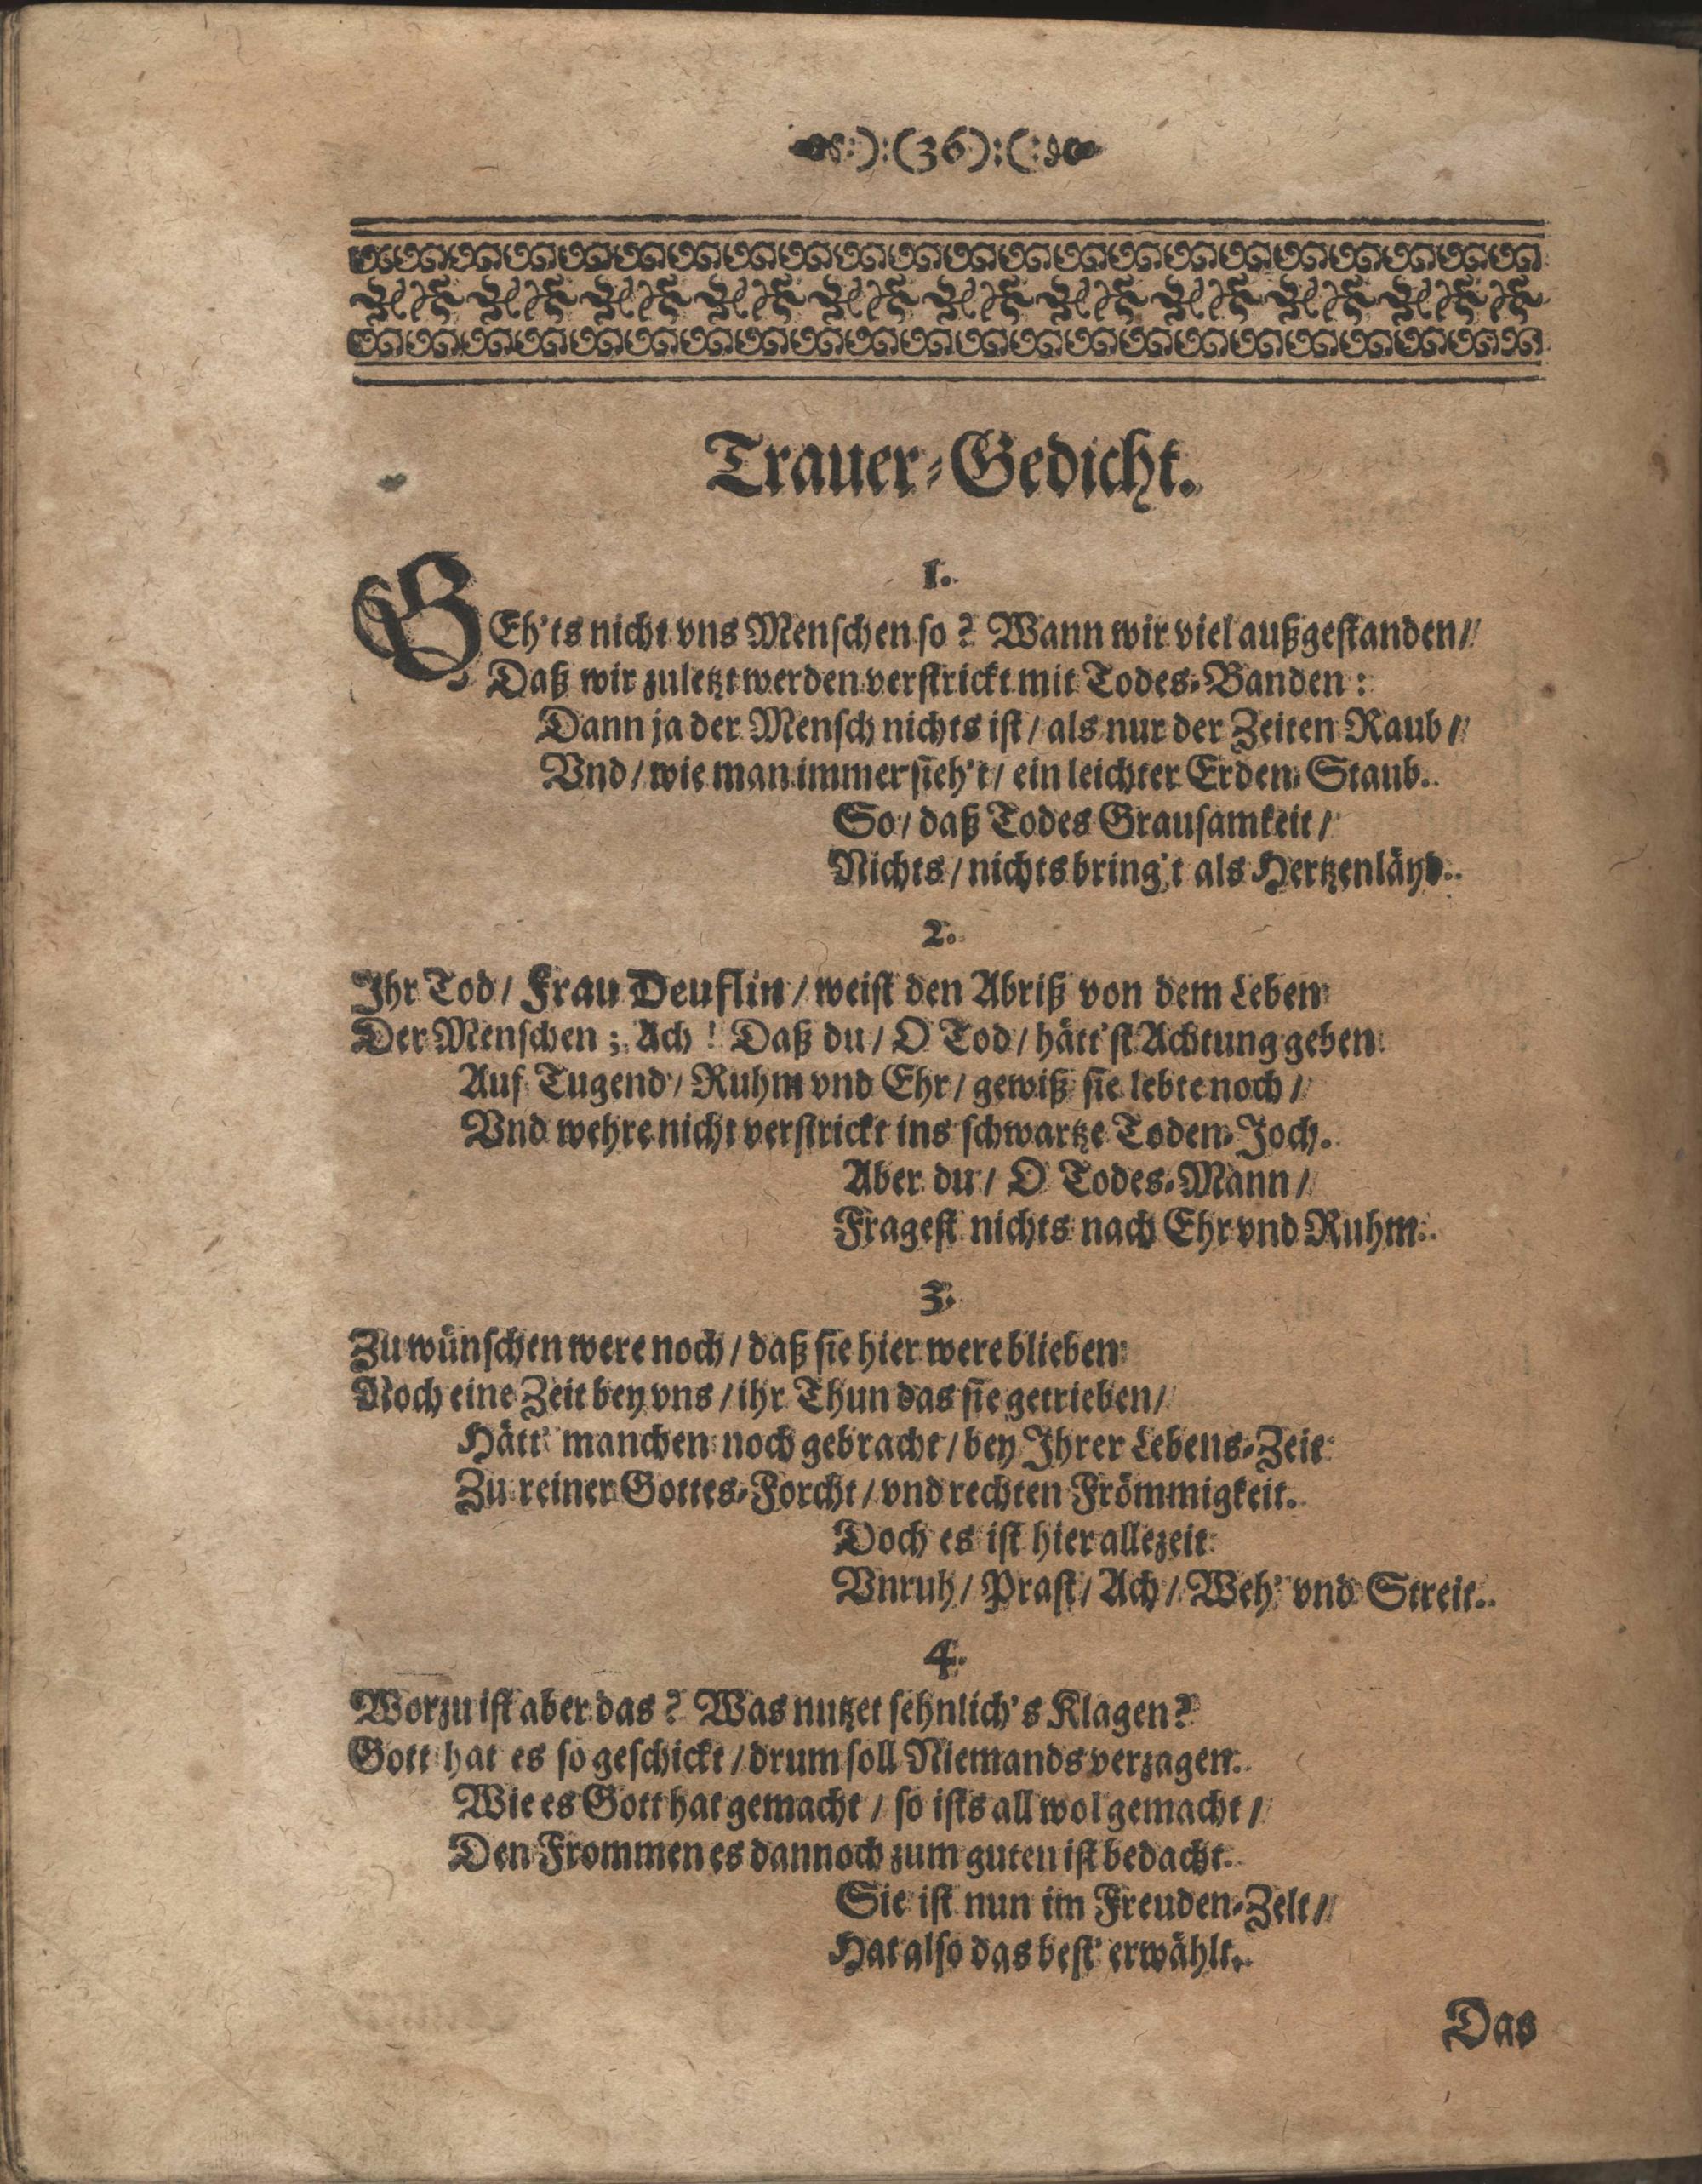 ):(36):(
Trauer-Gedicht.
1.
GEh'ts nicht vns Menschen so? Wann wir viel außgestanden/
Daß wir zuletzt werden verstrickt mit Todes-Banden:
Dann ja der Mensch nichts ist/ als nur der Zeiten Raub/
Vnd/ wie man immer sieh't/ ein leichter Erden-Staub.
So/ daß Todes Grausamkeit/
Nichts/ nichts bring't als Hertzenläyd.
2.
Ihr Tod/ Frau Deuflin/ weist den Abriß von dem Leben
Der Menschen; Ach! Daß du/ O Tod/ hätt'st Achtung geben
Auf Tugend/ Ruhm vnd Ehr/ gewiß sie lebte noch/
Vnd wehre nicht verstrickt ins schwartze Toden-Joch.
Aber du/ O Todes-Mann/
Fragest nichts nach Ehr vnd Ruhm.
3.
Zu wünschen were noch/ daß sie hier were blieben
Noch eine Zeit bey vns/ ihr Thun das sie getrieben/
Hätt' manchen noch gebracht/ bey Ihrer Lebens-Zeit
Zu reiner Gottes-Forcht/ vnd rechten Frömmigkeit.
Doch es ist hier allezeit
Vnruh/ Prast/ Ach/ Weh' vnd Streit.
4.
Worzu ist aber das? Was nutzet sehnlich's Klagen?
Gott hat es so geschickt/ drum soll Niemands verzagen.
Wie es Gott hat gemacht/ so ists all wol gemacht/
Den Frommen es dannoch zum guten ist bedacht.
Sie ist nun im Freuden-Zelt/
Hat also das best' erwählt.
Das